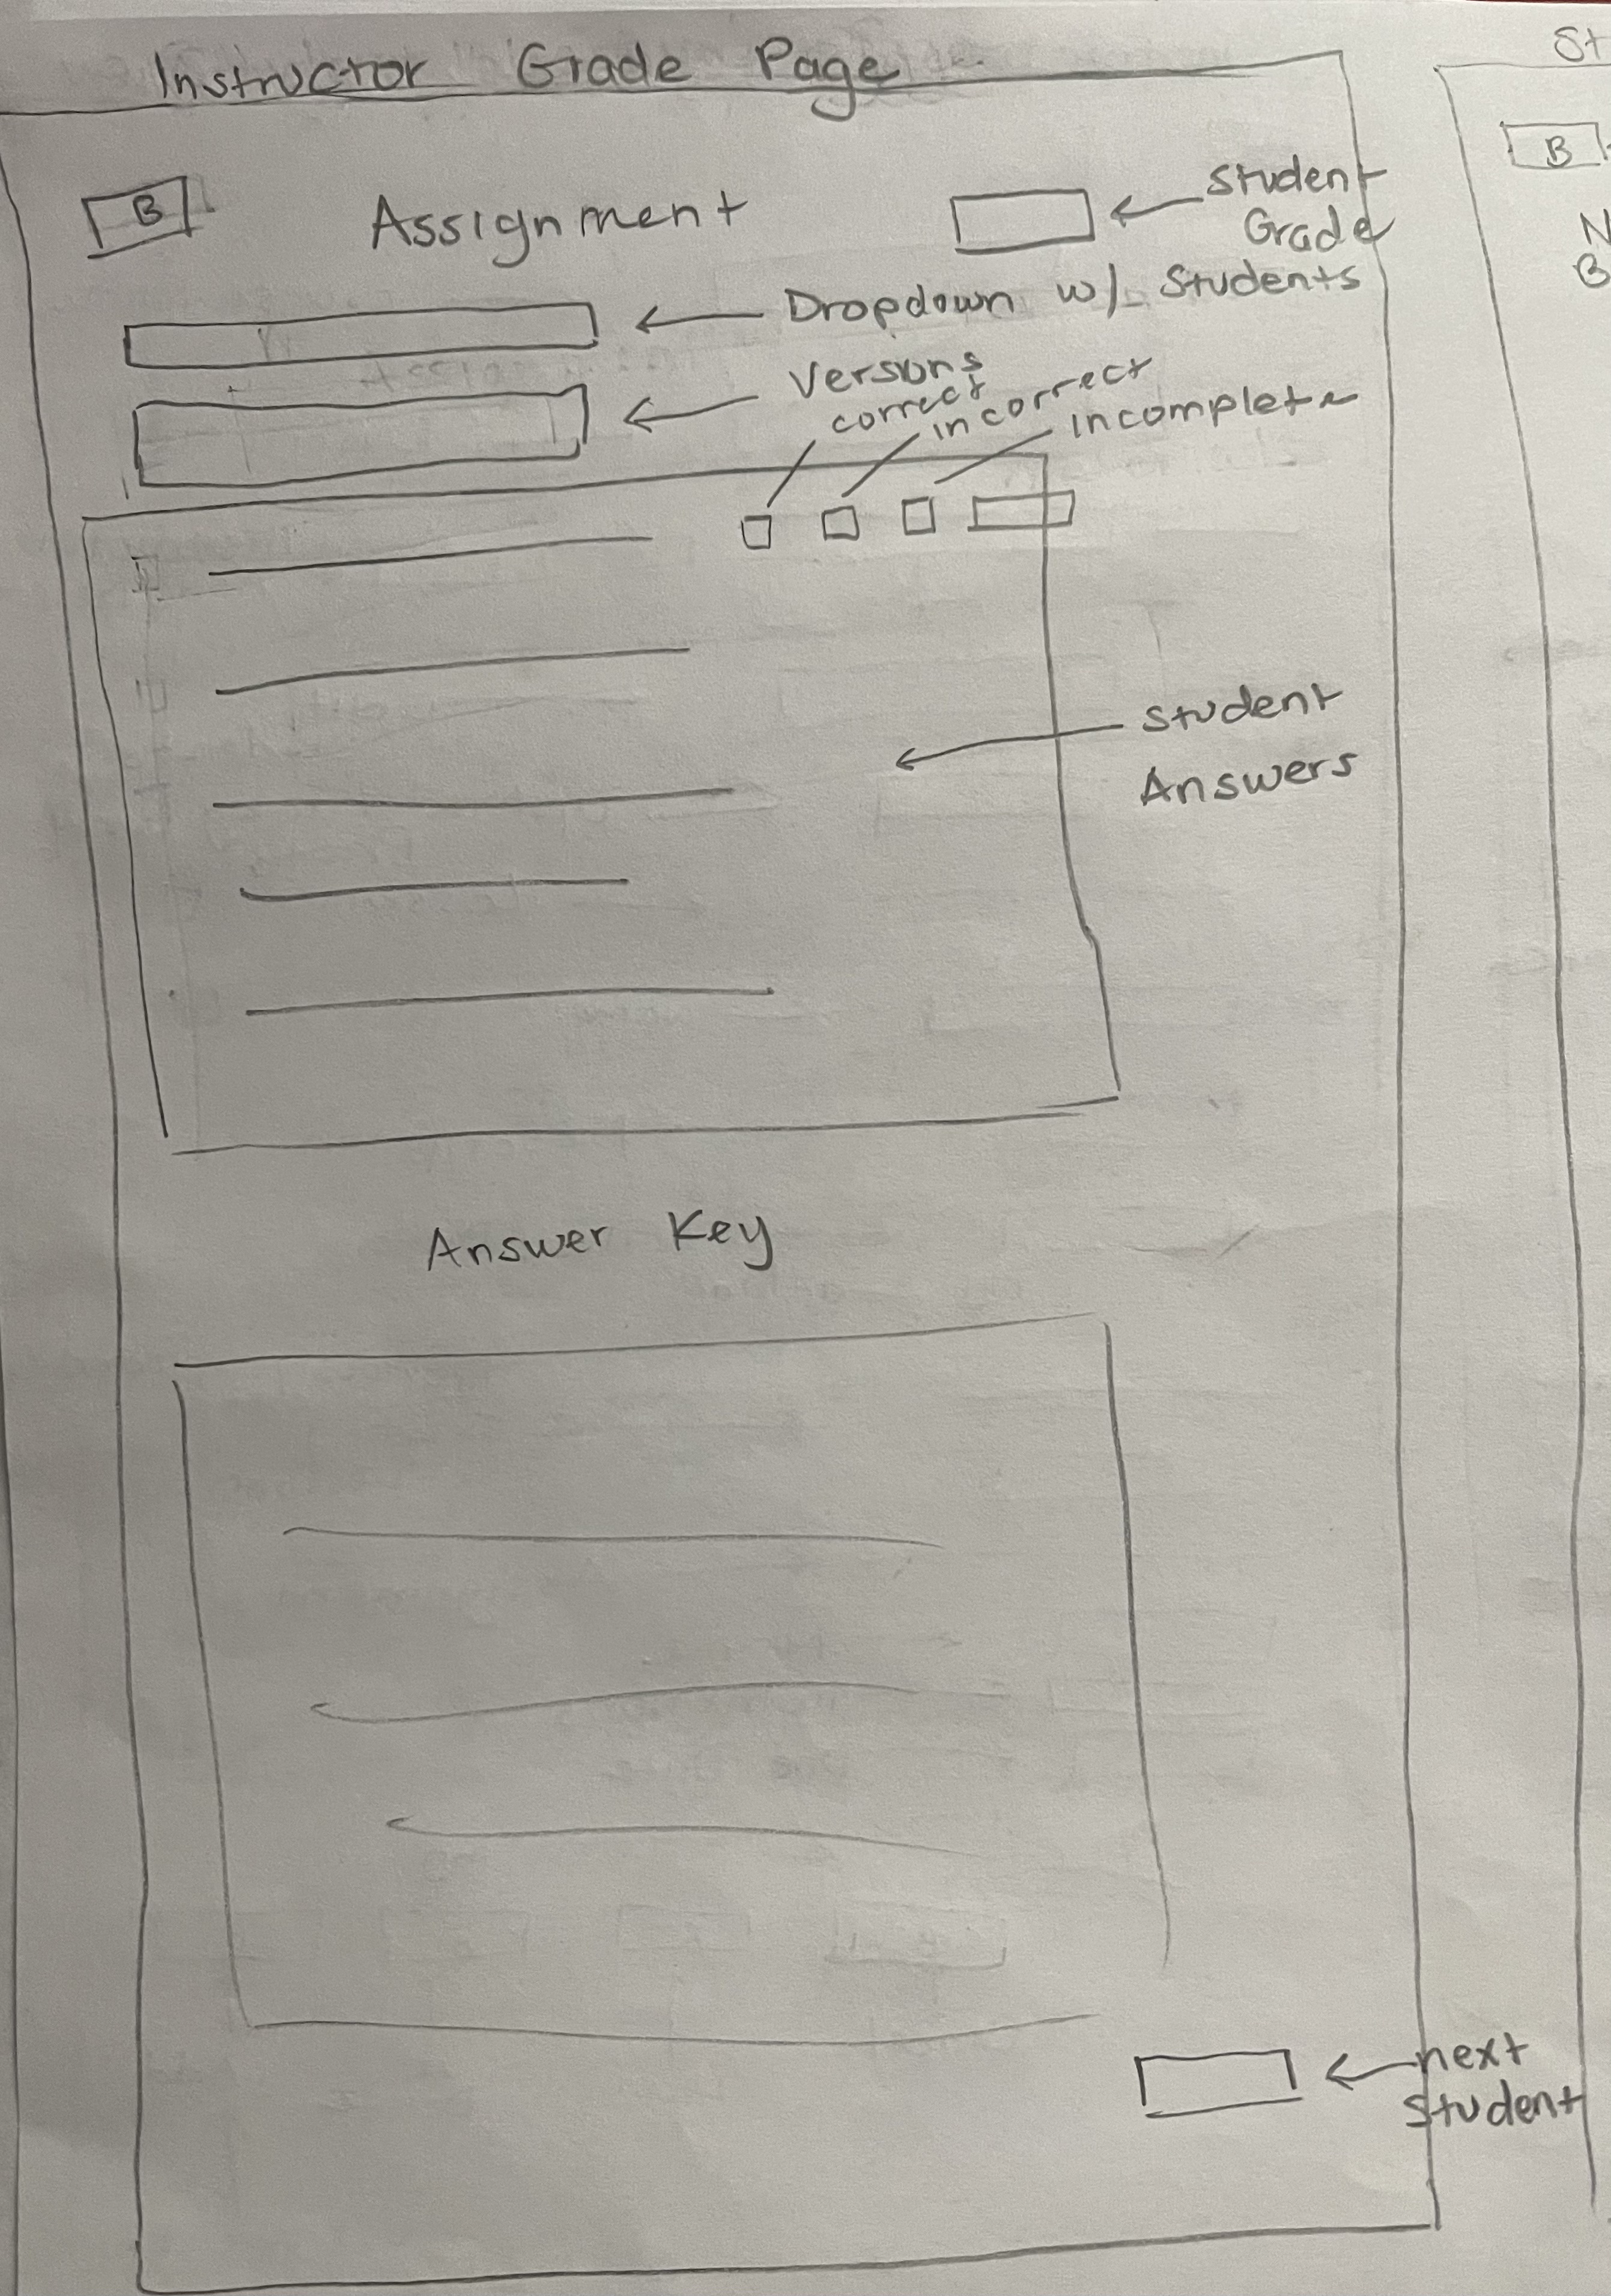 Instructor Grade Page
St
B
Assignment
Student
Grade
B
N
B
Dropdown w/ Students
Versions
correct
incorrect
incomplete
Student
Answers
Answer Key
next
Student